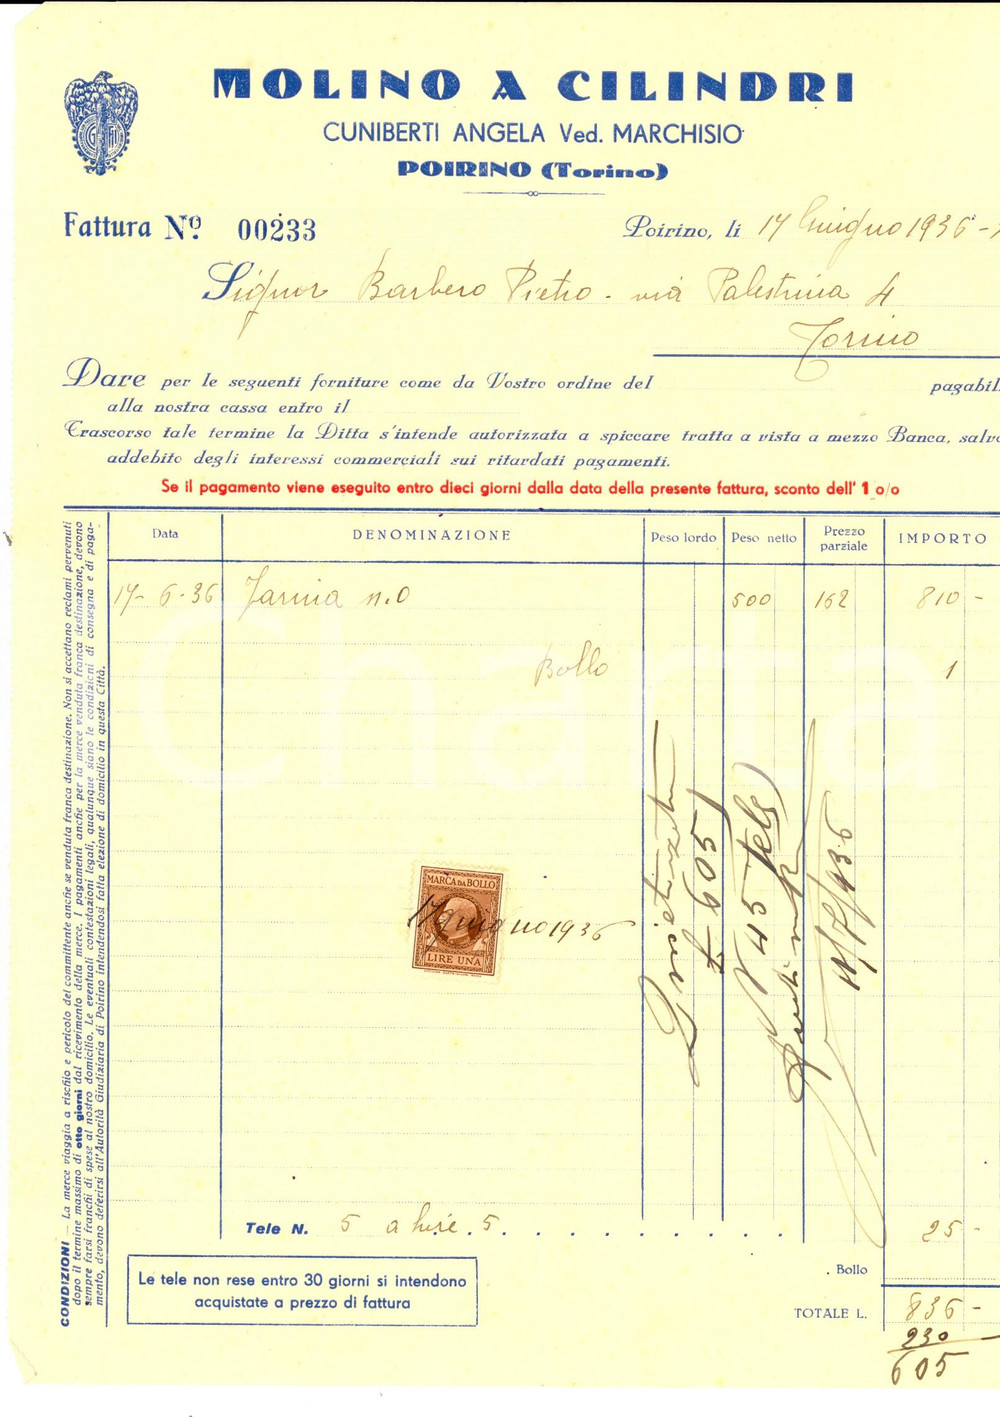 MOLINO A CILINDRI
CUNIBERTI ANGELA Ved. MARCHISIO
POIRINO (Torino)
Fattura Nº 00233
Poirino, li 17 Giugno 1936
Signor Barbero Pietro - via Palestrina 4
Torino
Dare per le seguenti forniture come da Vostro ordine del pagabil
alla nostra cassa entro il
Trascorso tale termine la Ditta s'intende autorizzata a spiccare tratta a vista a mezzo Banca, salvo
addebito degli interessi commerciali sui ritardati pagamenti.
Se il pagamento viene eseguito entro dieci giorni dalla data della presente fattura, sconto dell' 1 o/o
Data DENOMINAZIONE Peso lordo Peso netto Prezzo parziale IMPORTO
17-6-36 Farina n.0 500 162 810 -
Bollo 1
Quietanzata
£ 605
N 45 Tele
11/7/936
MARCA DA BOLLO
17 giugno 1936
LIRE UNA
Tele N. 5 a lire 5 . . . . . . . . 25 -
Le tele non rese entro 30 giorni si intendono
acquistate a prezzo di fattura
. Bollo
TOTALE L. 836 -
230
605
CONDIZIONI - La merce viaggia a rischio e pericolo del committente anche se venduta franca destinazione. Non si accettano reclami pervenuti
dopo il termine massimo di otto giorni dal ricevimento della merce. I pagamenti anche per la merce venduta franca destinazione, devono
sempre farsi franchi di spese al nostro domicilio. Le eventuali contestazioni legali, qualunque siano le condizioni di consegna e di paga-
mento, devono deferirsi all'Autorità Giudiziaria di Poirino intendendosi fatta elezione di domicilio in questa Città.